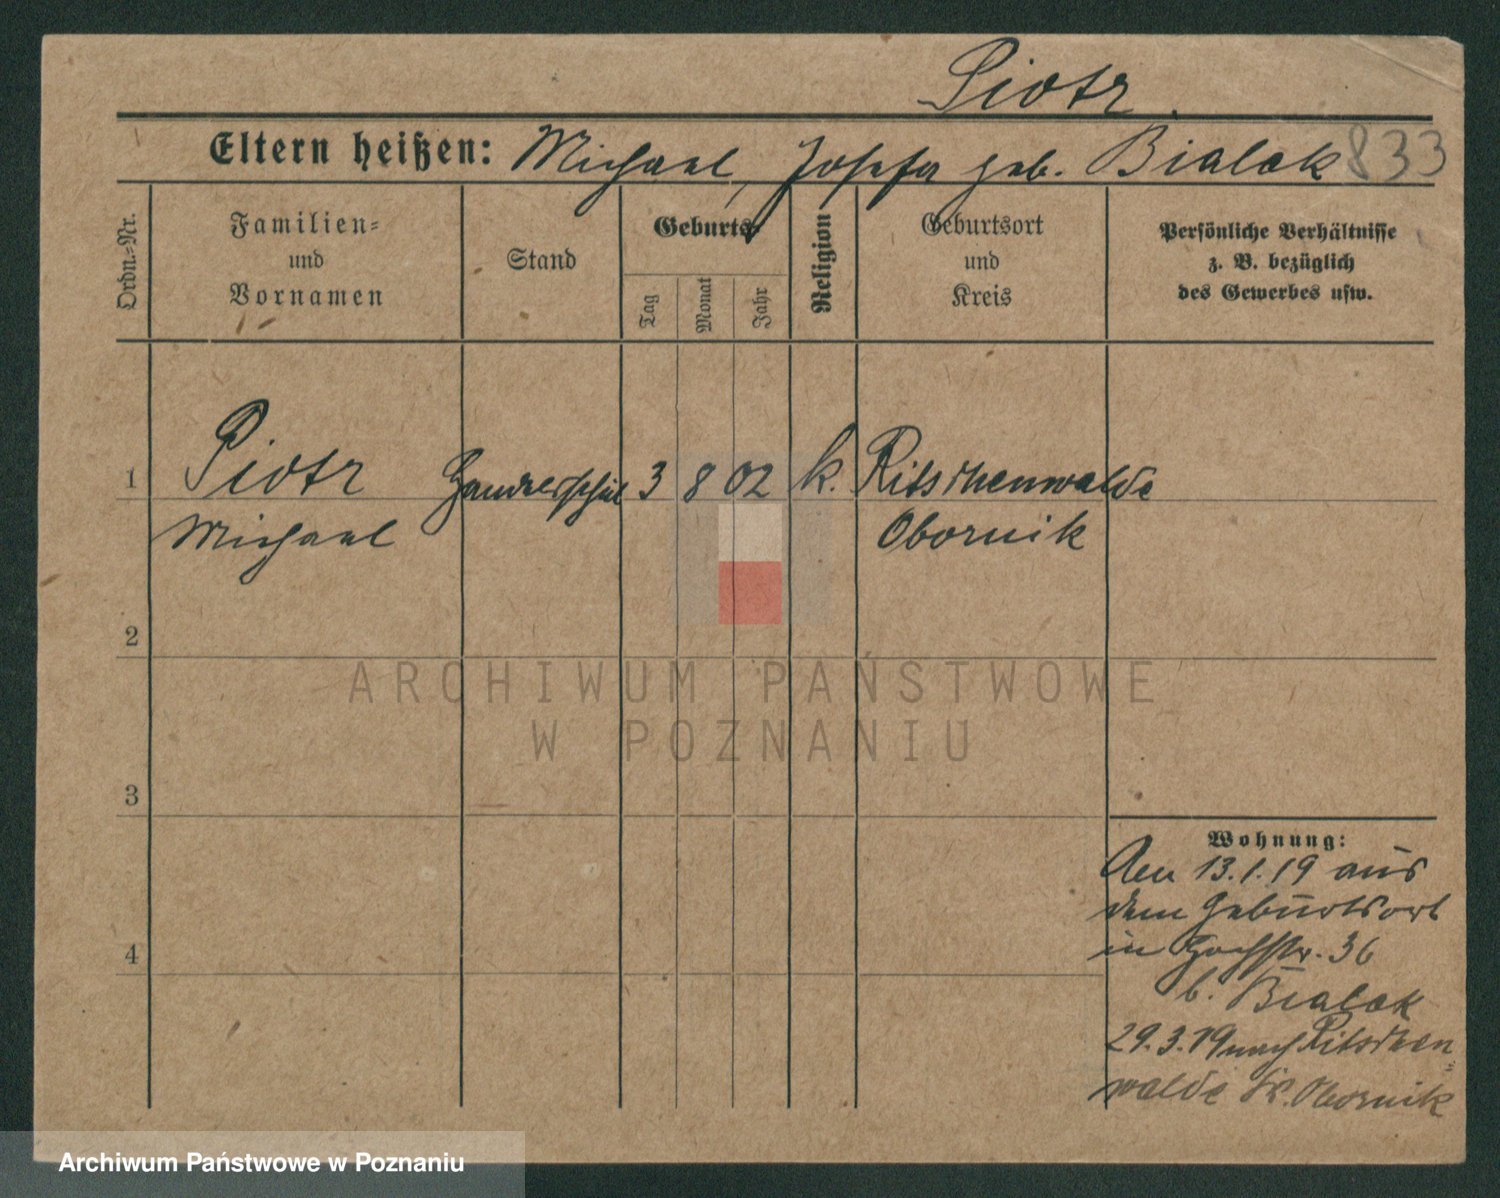 Piotr.
Eltern heißen: Michael, Josefa geb. Bialak 833
Ordn.=Nr.
Familien=
und
Vornamen
Stand
Geburts=
Tag
Monat
Jahr
Religion
Geburtsort
und
Kreis
Persönliche Verhältnisse
z. B. bezüglich
des Gewerbes usw.
1 Piotr Handelsschül 3 8 02 k. Ritschenwalde
Michael Obornik
2
3
4
Wohnung:
Am 13.1.19 aus
dem Geburtsort
in Hochstr. 36
b. Bialak
29.3.19 nach Ritschen=
walde Kr. Obornik
ARCHIWUM PAŃSTWOWE
W POZNANIU
Archiwum Państwowe w Poznaniu